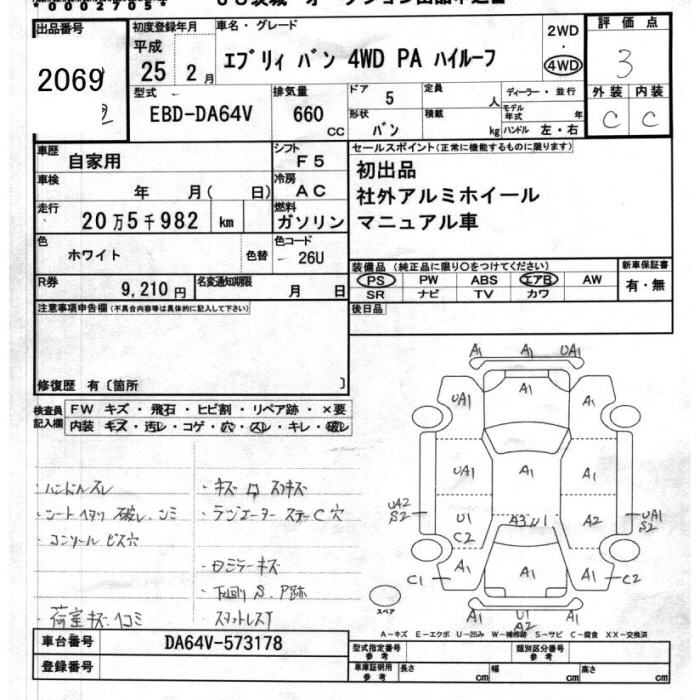 出品番号 初度登録年月 車名・グレード 2WD 評価点
平成
2069 25 2月 エブリィ バン 4WD PA ハイルーフ ・ 4WD 3
型式 排気量 ドア 5 定員 人 ディーラー・並行 外装 内装
EBD-DA64V 660 CC 形状 バン 積載 kg モデル年式 年 C C
ハンドル 左・右
車歴 自家用 シフト F5 セールスポイント(正常に機能するものに限ります)
車検 年 月( 日) 冷房 AC 初出品
走行 20万5千982 km 燃料 ガソリン 社外アルミホイール
マニュアル車
色 ホワイト 色替 色コード 26U
装備品 (純正品に限り○をつけてください) 新車保証書
R券 9,210円 名変通知期限 月 日 PS PW ABS エアB AW 有・無
SR ナビ TV カワ
注意事項申告欄(不具合内容等は具体的に記入して下さい) 後日品
修復歴 有〔箇所 〕
検査員 FW キズ・飛石・ヒビ割・リペア跡・×要
記入欄 内装 キズ・汚レ・コゲ・穴・スレ・キレ・破レ
・ハンドルスレ
・シートヘタリ 破レ・シミ ・ラジエーターステーC穴
・コンソールビス穴
・ロミラーキズ
・下廻り S、P跡
・荷室キズ・凹コミ ・スタットレスT
A1 A1 UA1
UA1 A1 A1
UA1 A1 A1
UA2 S2 U1 A3U1 A2 UA1 S2
C2
C1 A1 A1 A1 C2
U1 A2 A1
スペア
A-キズ E-エクボ U-凹み W-補修跡 S-サビ C-腐食 XX-交換済
車台番号 DA64V-573178 型式指定番号 参考 類別区分番号 参考
登録番号 車庫証明用 参考 長さ cm 幅 cm 高さ cm